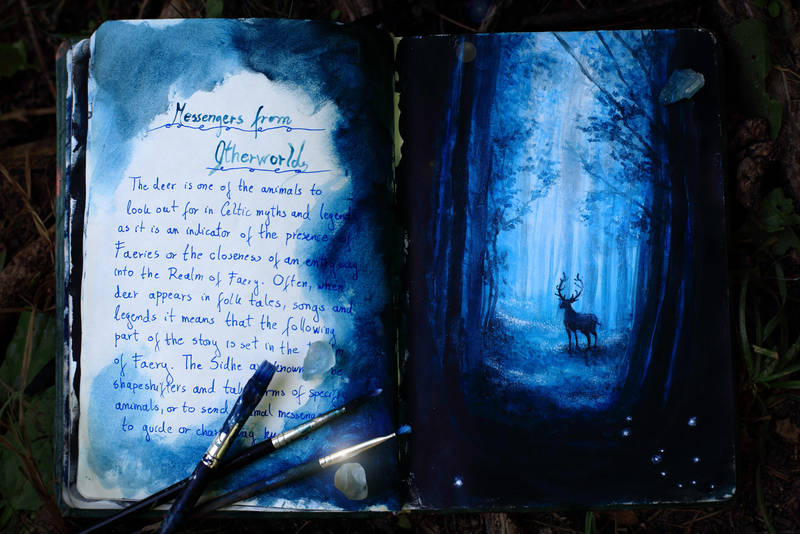 Messengers from
Otherworld
The deer is one of the animals to
look out for in Celtic myths and legends
as it is an indicator of the presence of
Faeries or the closeness of an entryway
into the Realm of Faery. Often, when
deer appears in folk tales, songs and
legends it means that the following
part of the story is set in the
of Faery. The Sidhe are known
shapeshifters and take forms of
animals, or to send
to guide or